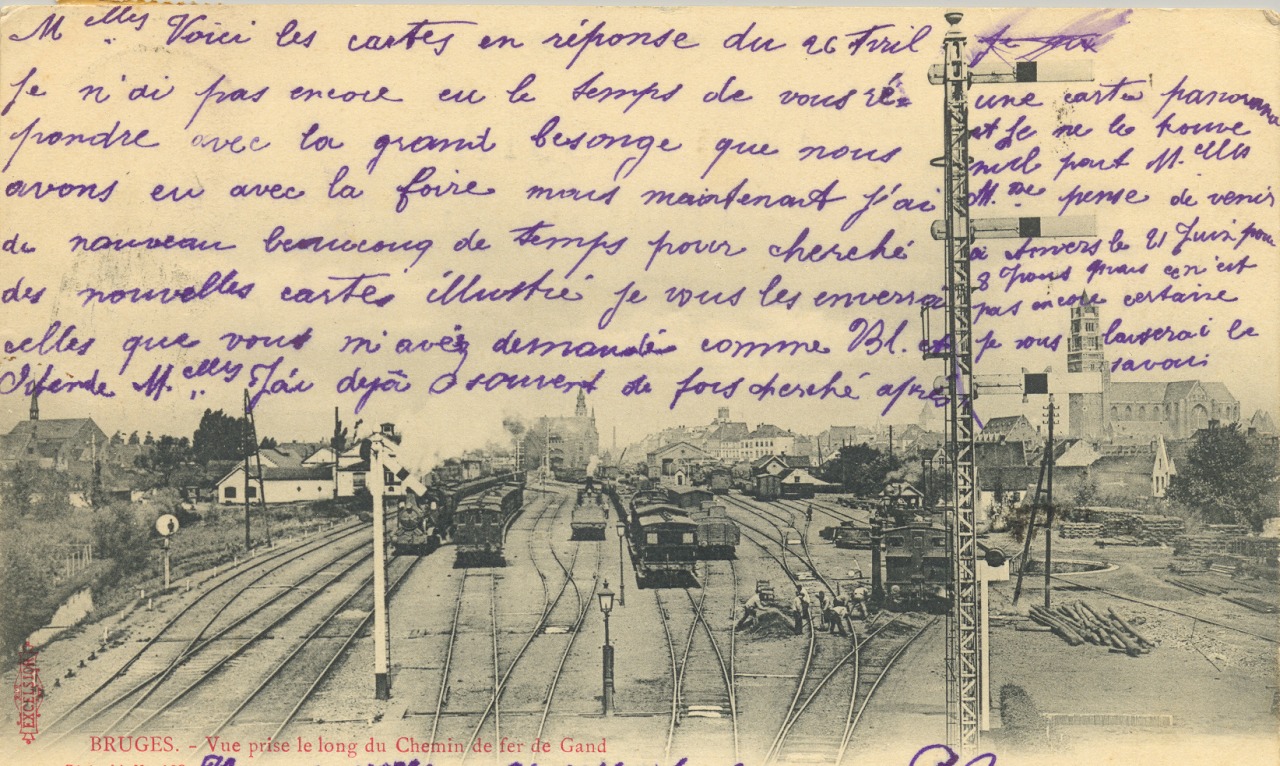 M elles Voici les cartes en réponse du 26 Avril
Je n'ai pas encore eu le temps de vous ré-
pondre avec la grand besonge que nous
avons eu avec la foire mais maintenant j'ai
de nouveau beaucoup de temps pour cherché
des nouvelles cartes illustré je vous les enverrai
celles que vous m'avéz demandés comme Bl. et
Ostende M. elles J'ai dejà souvent de fois cherché après
une carte panorama
et je ne le trouve
nul part M. elles
M. me pense de venir
à Anvers le 21 Juin pour
8 Jours mais ce n'est
pas encore certaine
je vous lauserai le
savoir
EXCELSIOR
BRUGES. - Vue prise le long du Chemin de fer de Gand